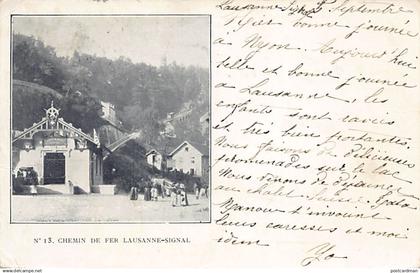 Lausanne 5 Septembre
bonne journée
à Nyon. Aujourd'hui
belle et bonne journée
à Lausanne, les
enfants sont ravis
et très bien portants.
Nous faisons de délicieuses
promenades sur le lac
Nous venons de déjeuner
au chalet Suisse. Gala
Manou t'envoient
leurs caresses et moi
idem
Yo
N° 13. CHEMIN DE FER LAUSANNE-SIGNAL
© postcardman